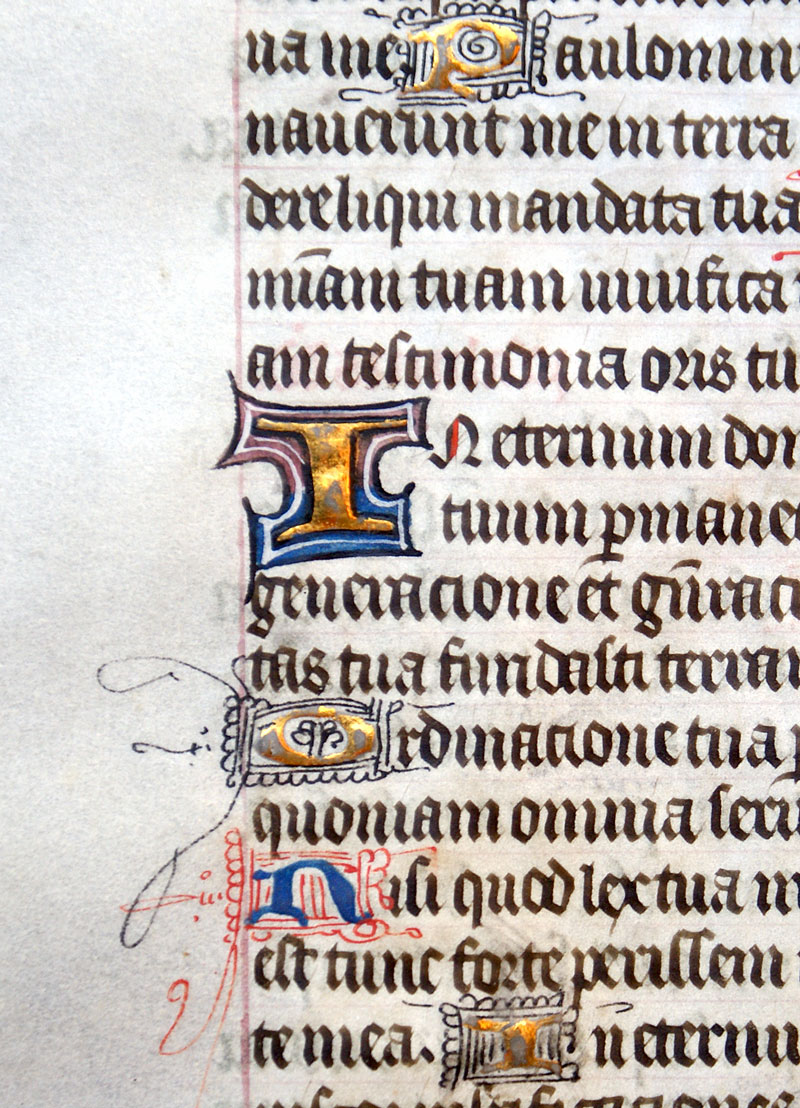 ua me Paulominu
nauerunt me in terra
dereliqui mandata tua
mīam tuam uiuifica
am testimonia oris tu
IN eternum don
tuum ꝑmanet
generacione et gn̄raci
tas tua fundasti terram
Ordinacione tua
quoniam omnia seru
Nisi quod lex tua m
est tunc forte perissem
te mea. In eternu